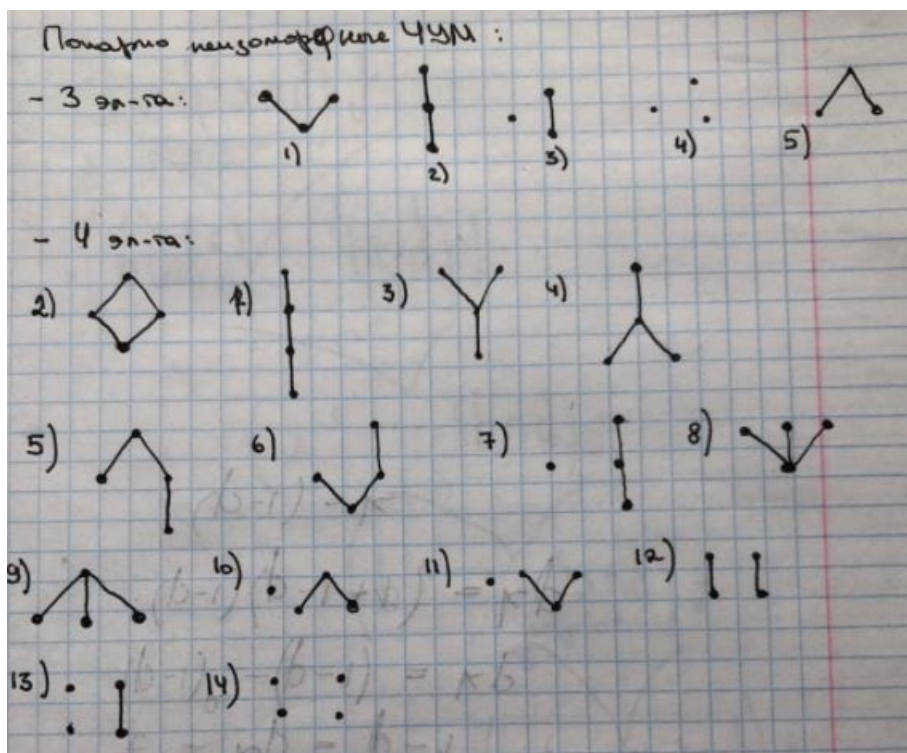 Попарно неизоморфные ЧУМ:
- 3 эл-та:
1) 2) 3) 4) 5)
- 4 эл-та:
2) 1) 3) 4)
5) 6) 7) 8)
9) 10) 11) 12)
13) 14)